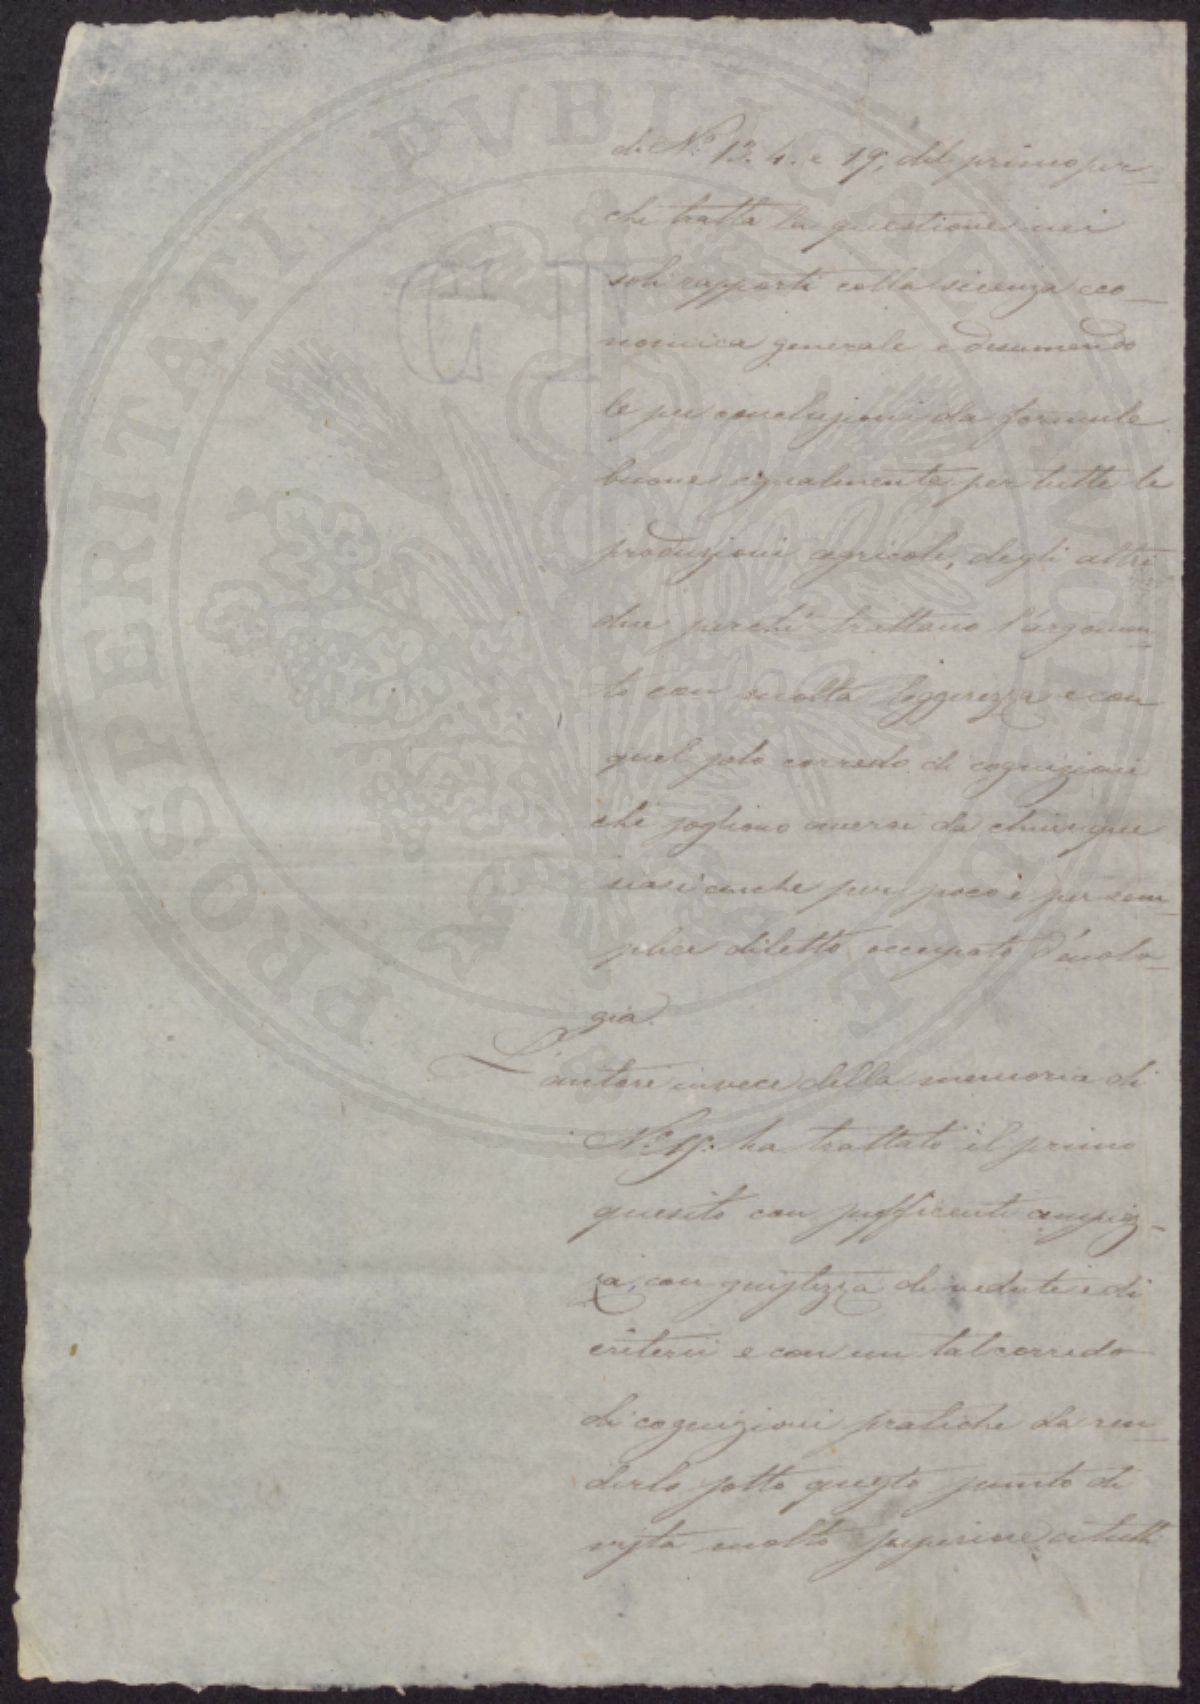 di N.° 13. 4. e 19, del primo per-
chè tratta la questione nei
soli rapporti colla scienza eco-
nomica generale e desumendo
le sue conclusioni da formule
buone egualmente per tutte le
produzioni agricole, degli altri
due perchè trattano l'argomen-
to con molta leggerezza e con
quel solo corredo di cognizioni
che sogliono aversi da chiunque
siasi anche per poco e per sem-
plice diletto occupato d'enolo-
gia.
L'autore invece della memoria di
N.° 15. ha trattato il primo
quesito con sufficiente ampiez-
za, con giustezza di vedute e di
criterii e con un tal corredo
di cognizioni pratiche da ren-
derlo sotto questo punto di
vista molto superiore a tutti
PROSPERITATI PVBLICAE